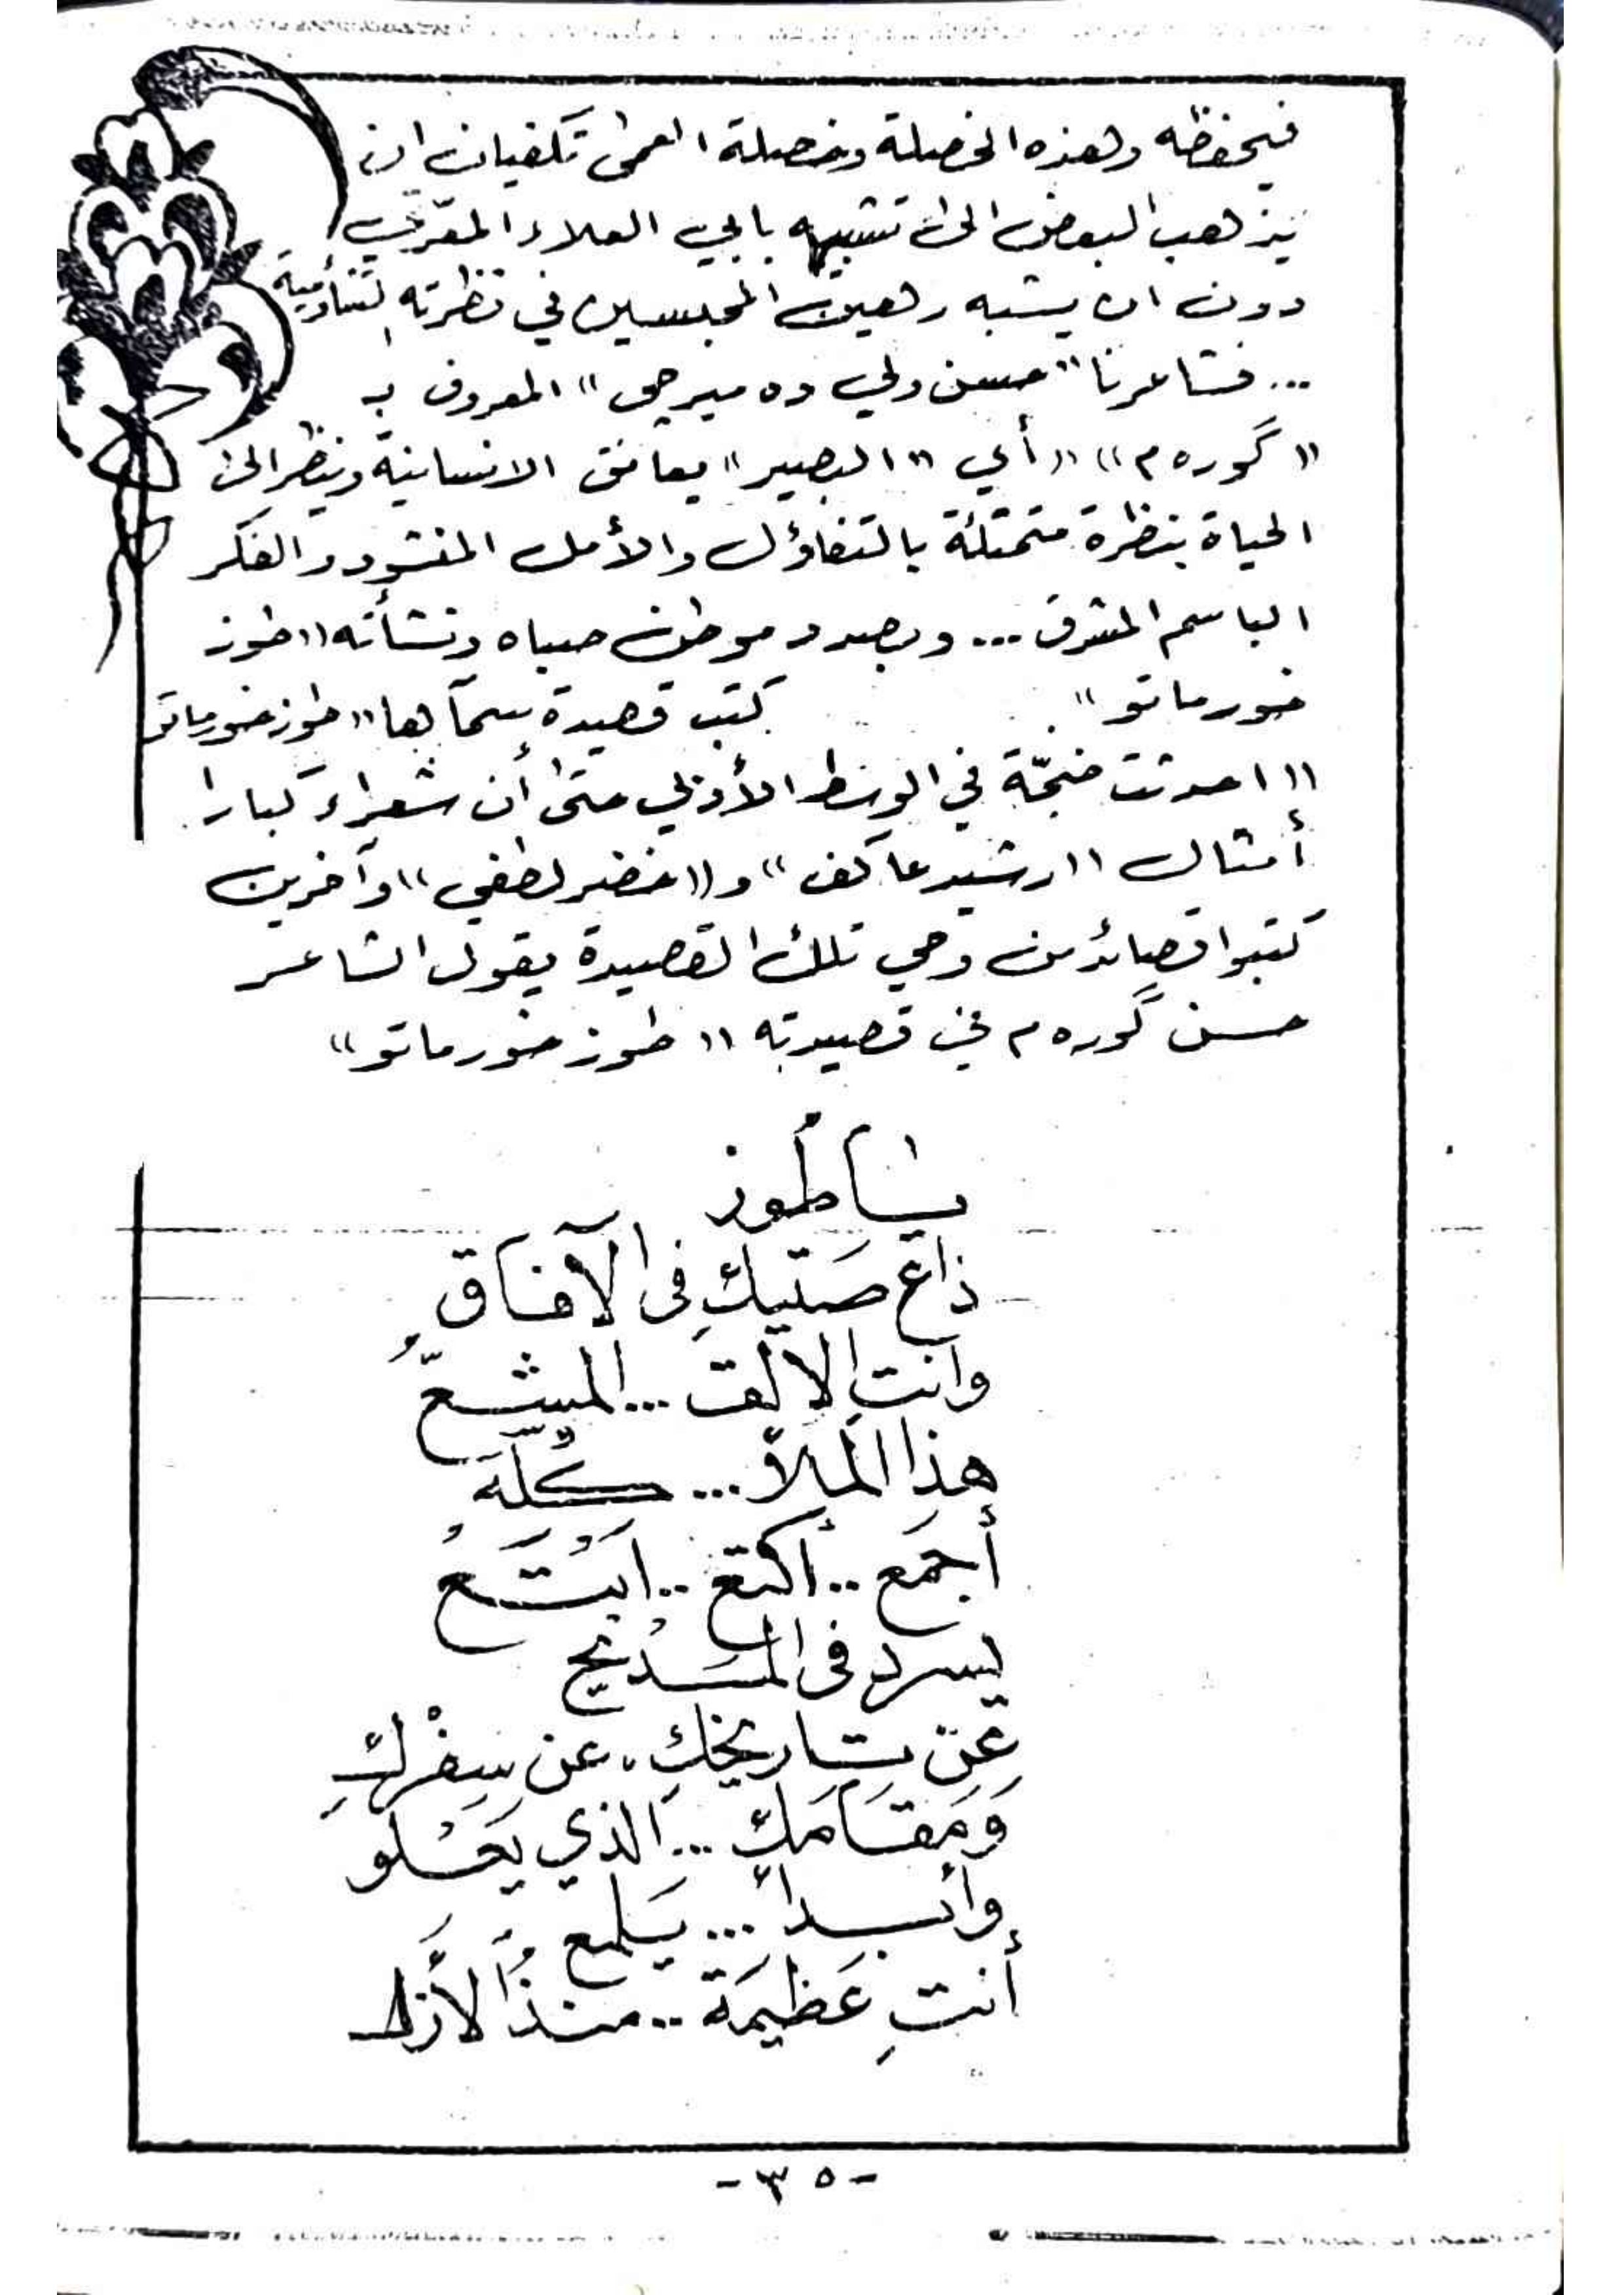 فيحفظه وهذه الخصلة وخصلة العمى تكفيان ان
يذهب البعض الى تشبيهه بابي العلاء المعرّي
دون ان يشبه رهين المحبسين في نظرته التشاؤمية
... فشاعرنا "حسن ولي ده ميرچى" المعروف بـ
"گوره م" "أي "البصير" يعانق الانسانية وينظر الى
الحياة بنظرة متمتلئة بالتفاؤل والأمل المنشود والفكر
الباسم المشرق ... وبصدد موطن صباه ونشأته "طوز
خورماتو" كتب قصيدة سمّاها "طوز خورماتو
"احدثت ضجّة في الوسط الأدبي حتى أن شعراء كبارا
أمثال "رشيد عاكف" و "خضر لطفي" وآخرين
كتبوا قصائد من وحي تلك القصيدة يقول الشاعر
حسن گوره م في قصيدته "طوز خورماتو"
يا طُوز
ذاع صَتيكِ فى الآفاقِ
وانتِ الالَق ... المشعُّ
هذا المَلأ ... كُلَّه
أجمَع .. أكتع .. ابتَعُ
يسرد فى المَديح
عَن تاريخكِ، عن سِفْركِ
وَمَقَامَكِ ... الذي يَعْلو
وأبداً ... يَلمع
أنتِ عَظيمَة .. منذُ الأزَل
- ٣٥ -